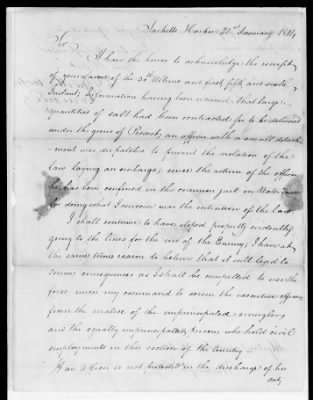 Sacketts Harbor 22nd January 1814
Sir
I have the honor to acknowledge the receipt
of your favors of the 30th Ultimo and first, fifth and
Instant; Information having been received, that large
quantities of salt had been contracted for to be delivered
under the guns of Prescott, an officer with a small detach-
ment was dispatched to prevent the violation of the
law laying an embargo; since the return of the officer
he has been confined in the common jail in Water Town
for doing what I conceive was the intention of the law
I shall continue to have stopped property evidently
going to the lines for the use of the Enemy; I have at
the same time reason to believe that it will lead to
serious consequences as I shall be compelled to use the
force under my command to screen the executive officers
from the malice of the unprincipated smugglers
and the equally unprincipated persons who hold civil
employments in this section of the Country
If an officer is not protected in the discharge of his
duty